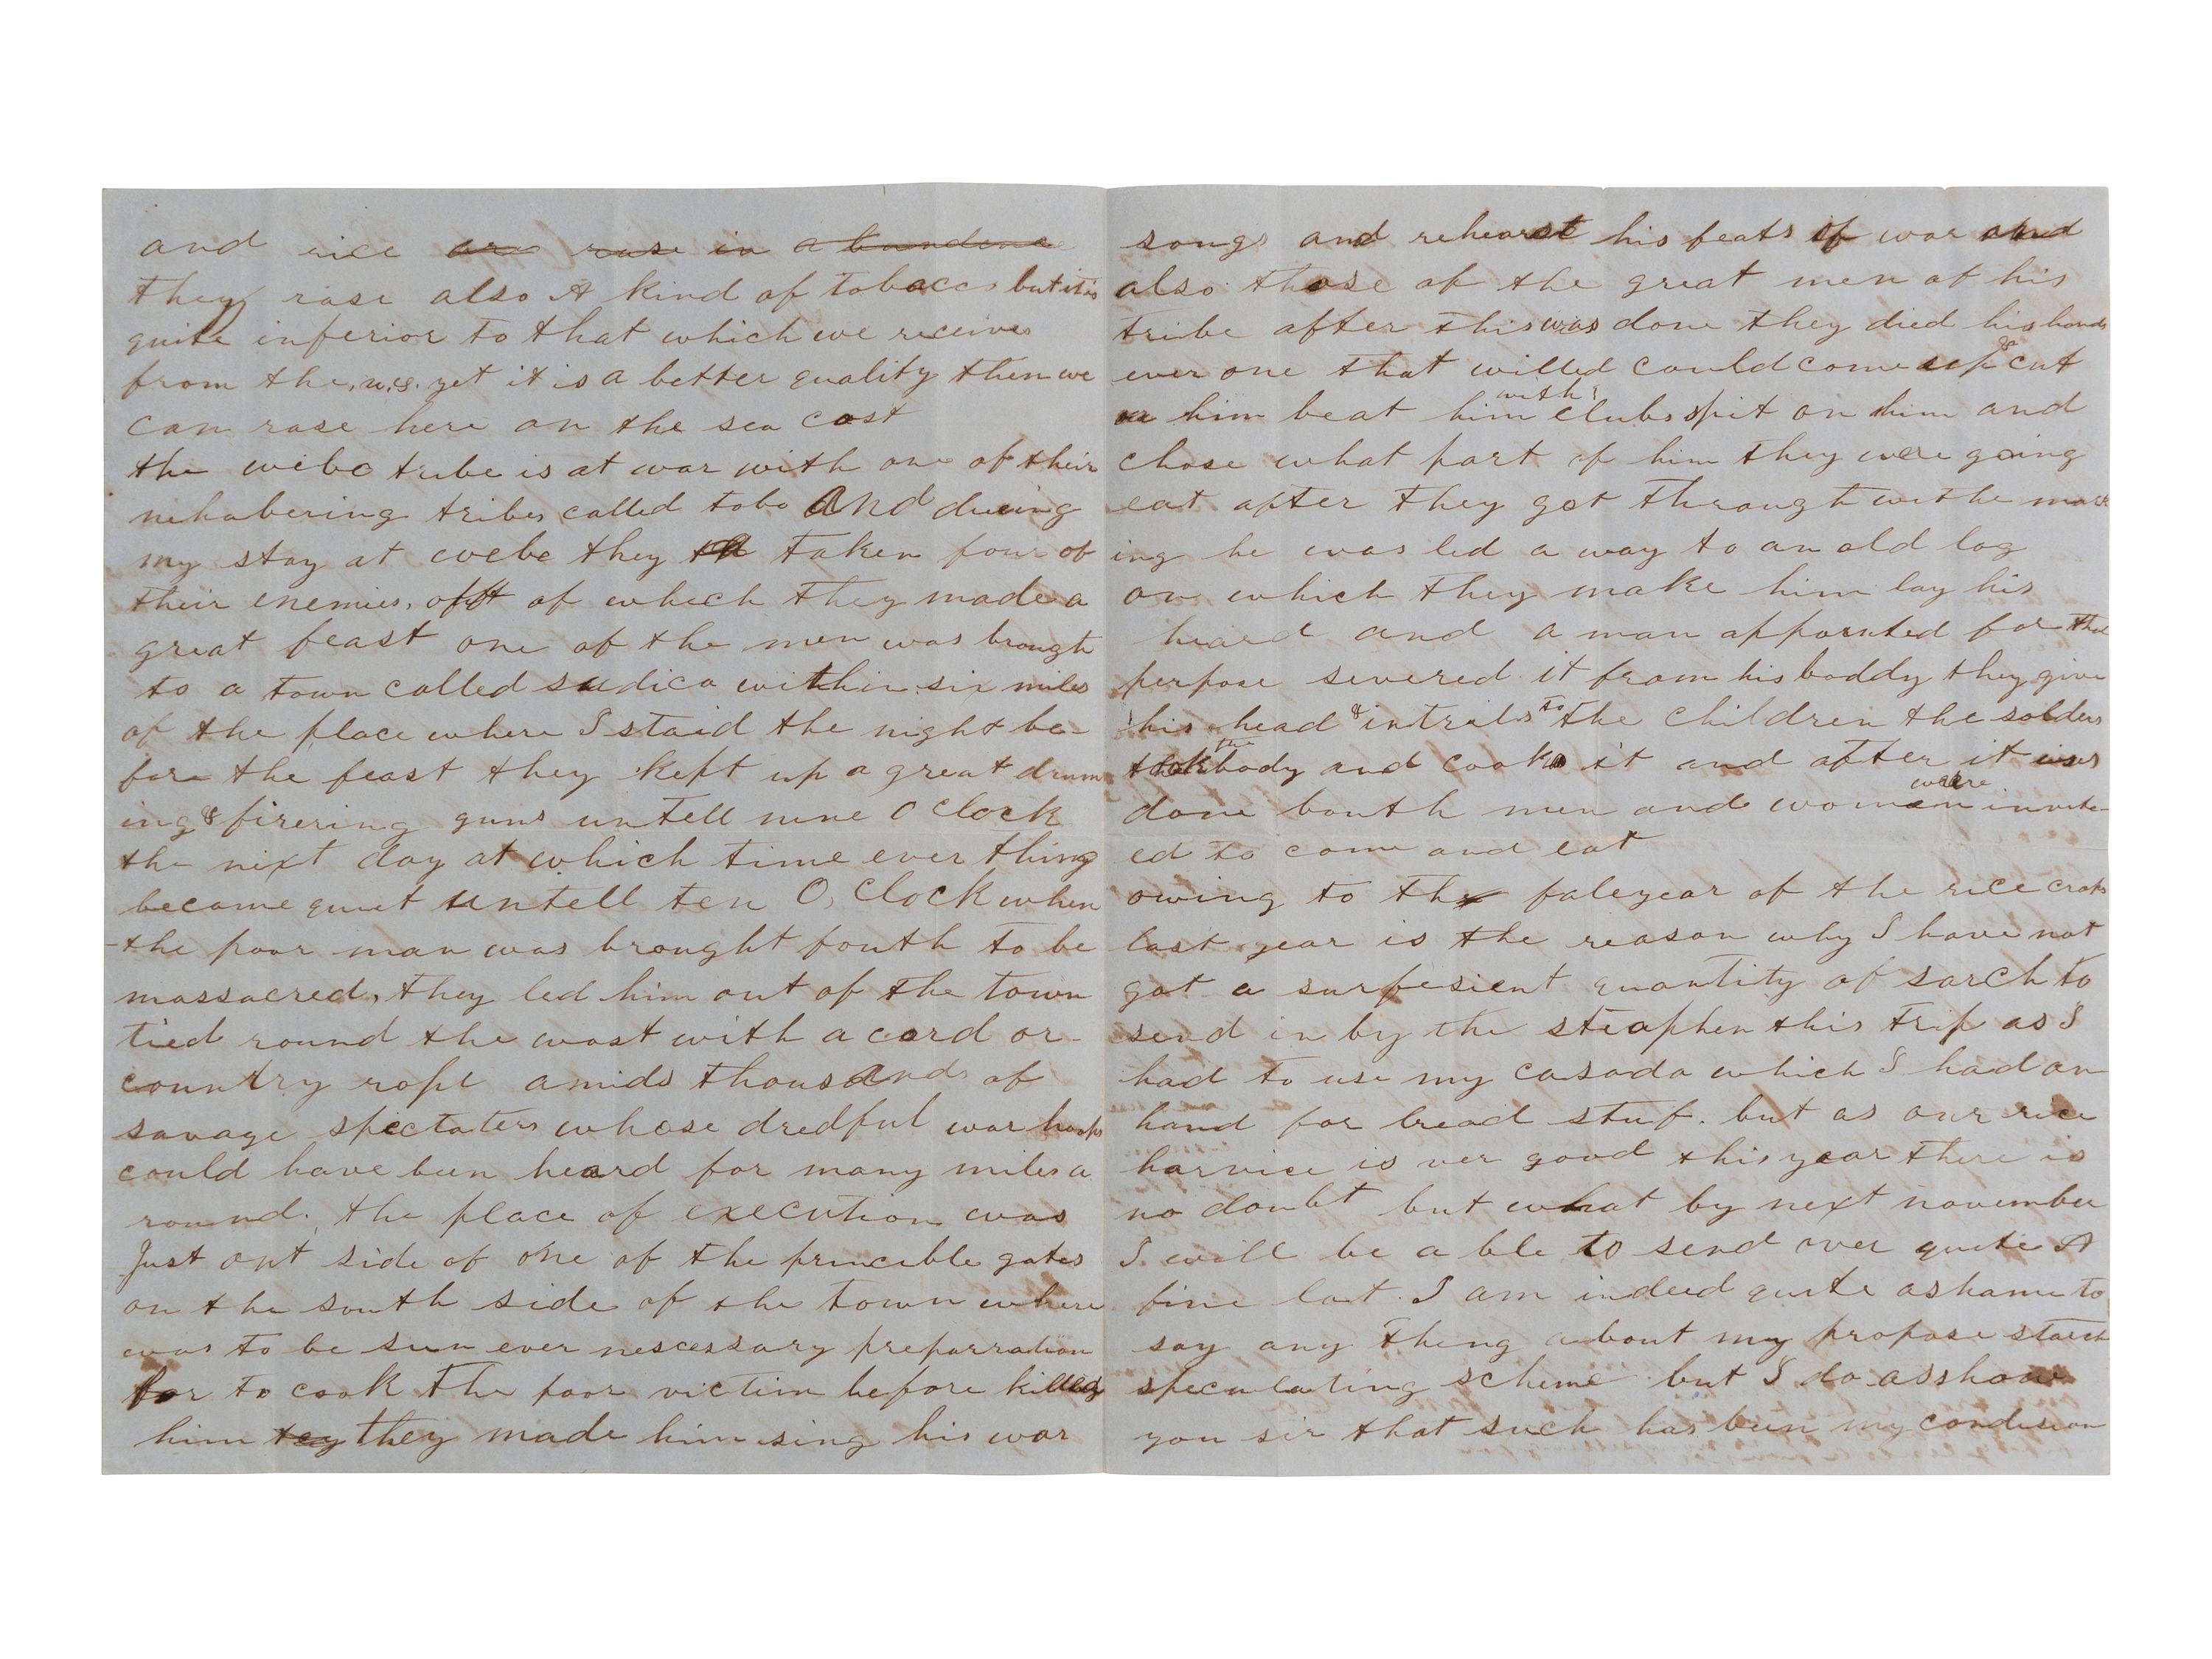 and rice are rase in a bundence
they rase also A kind of tobacco but it is
quite inferior to that which we receives
from the u.s. yet it is a better quality then we
can rase here on the sea cost
the webo tribe is at war with one of their
nehabering tribes called tobo And dueing
my stay at webo they taken four of
their enemies, off of which they made a
great feast one of the men was brough
to a town called sudica within six miles
of the place where I staid the night be-
fore the feast they kept up a great drum
ing & firering guns untell nine O clock
the next day at which time ever thing
became quiet untell ten O, Clock when
the poor man was brought fouth to be
massacred, they led him out of the town
tied round the wast with a cord or
country rope amids thousands of
savage spectaters whose dredful war hoops
could have been heard for many miles a
round. the place of execution was
Just out side of one of the princible gates
on the south side of the town where
was to be sun ever nescessary preparration
for to cook the poor victim before killing
him tey they made him sing his war
songs and rehearst his feats of war and
also those of the great men of his
tribe after this was done they died his hands
ever one that willed could come up & cut
him beat him with clubs spit on him and
chose what part of him they were going
eat after they got through withe mock
ing he was led a way to an old log
on which they make him lay his
heard and a man appornted for that
perpose severed it from his boddy they give
his head & intrils to the children the solders
took the body and cook it and after it was
done bouth men and women weare invite-
ed to come and eat
owing to the faleyear of the rice crops
last year is the reason why I have not
got a surfesient quantity of sarch to
send in by the steaphen this trip as I
had to use my casada which I had on
hand for bread stuf. but as our rice
harvice is ver good this year there is
no doubt but what by next november
I will be a ble to send over quite A
fine lot. I am indeed quite ashame to
say any thing about my propose starch
speculating scheme but I do asshore
you sir that such has been my condision